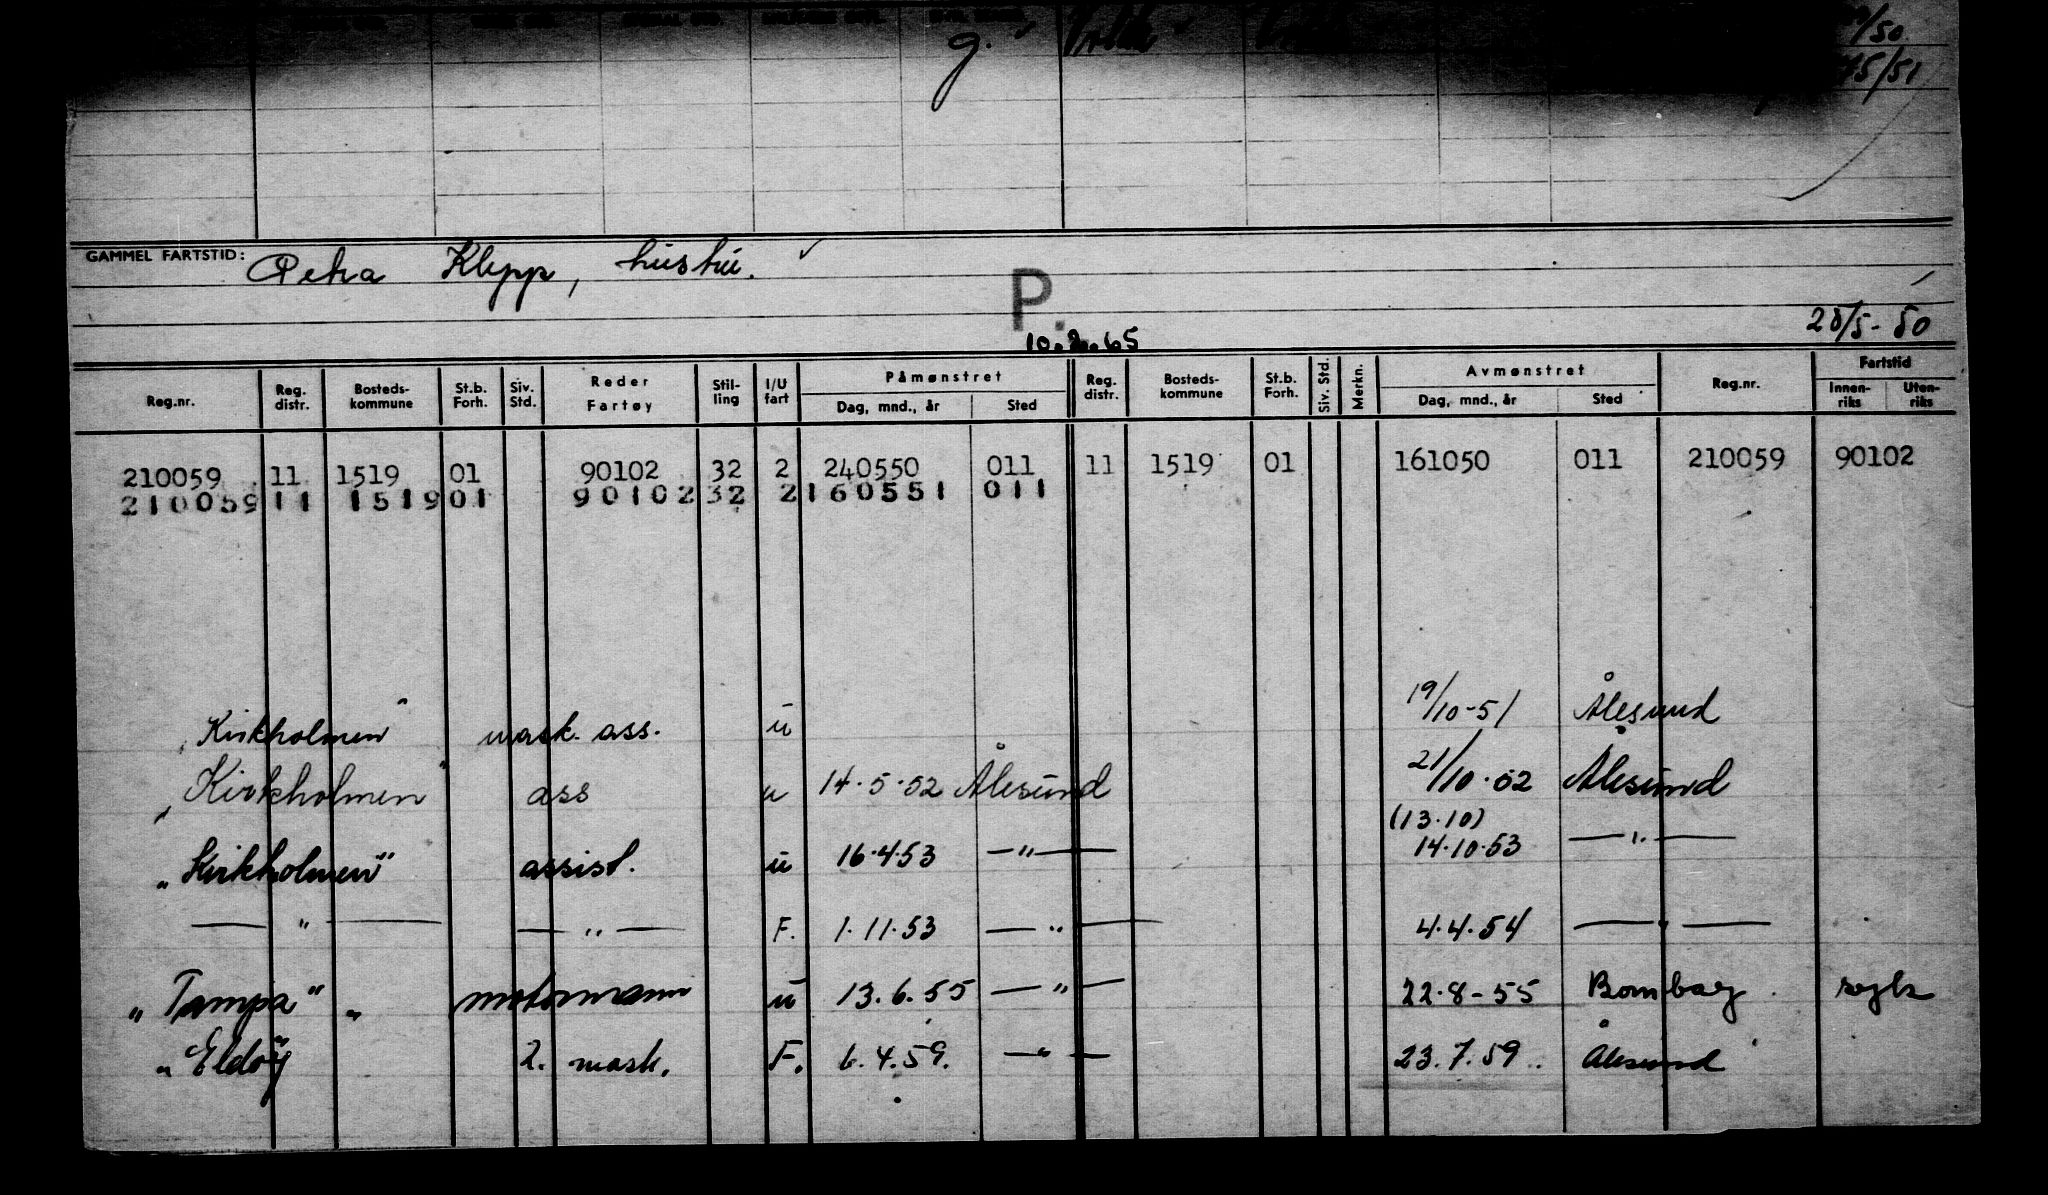 g.
/50.
/51
GAMMEL FARTSTID: Petra Klepp, hustru.
P.
25/5-50
10.2.65
Reg.nr. Reg. distr. Bosteds-kommune St.b. Forh. Siv. Std. Reder Fartøy Stil-ling I/U fart Påmønstret Dag, mnd., år Sted Reg. distr. Bosteds-kommune St.b. Forh. Siv. Std. Merkn. Avmønstret Dag, mnd., år Sted Reg.nr. Fartstid Innen-riks Uten-riks
210059 11 1519 01 90102 32 2 240550 011 11 1519 01 161050 011 210059 90102
210059 11 1519 01 90102 32 2 160551 011
"Kirkholmen" mask. ass. u 19/10-51 Ålesund
"Kirkholmen" ass u 14.5.52 Ålesund 21/10.52 Ålesund
(13.10)
"Kirkholmen" assist. u 16.4.53 —"— 14.10.53 —"—
—"— —"— F. 1.11.53 —"— 4.4.54 —"—
"Tampa" " motormann u 13.6.55 —"— 22.8-55 Bombay syk
"Eldøy" 2. mask. F. 6.4.59. —"— 23.7.59.. Ålesund